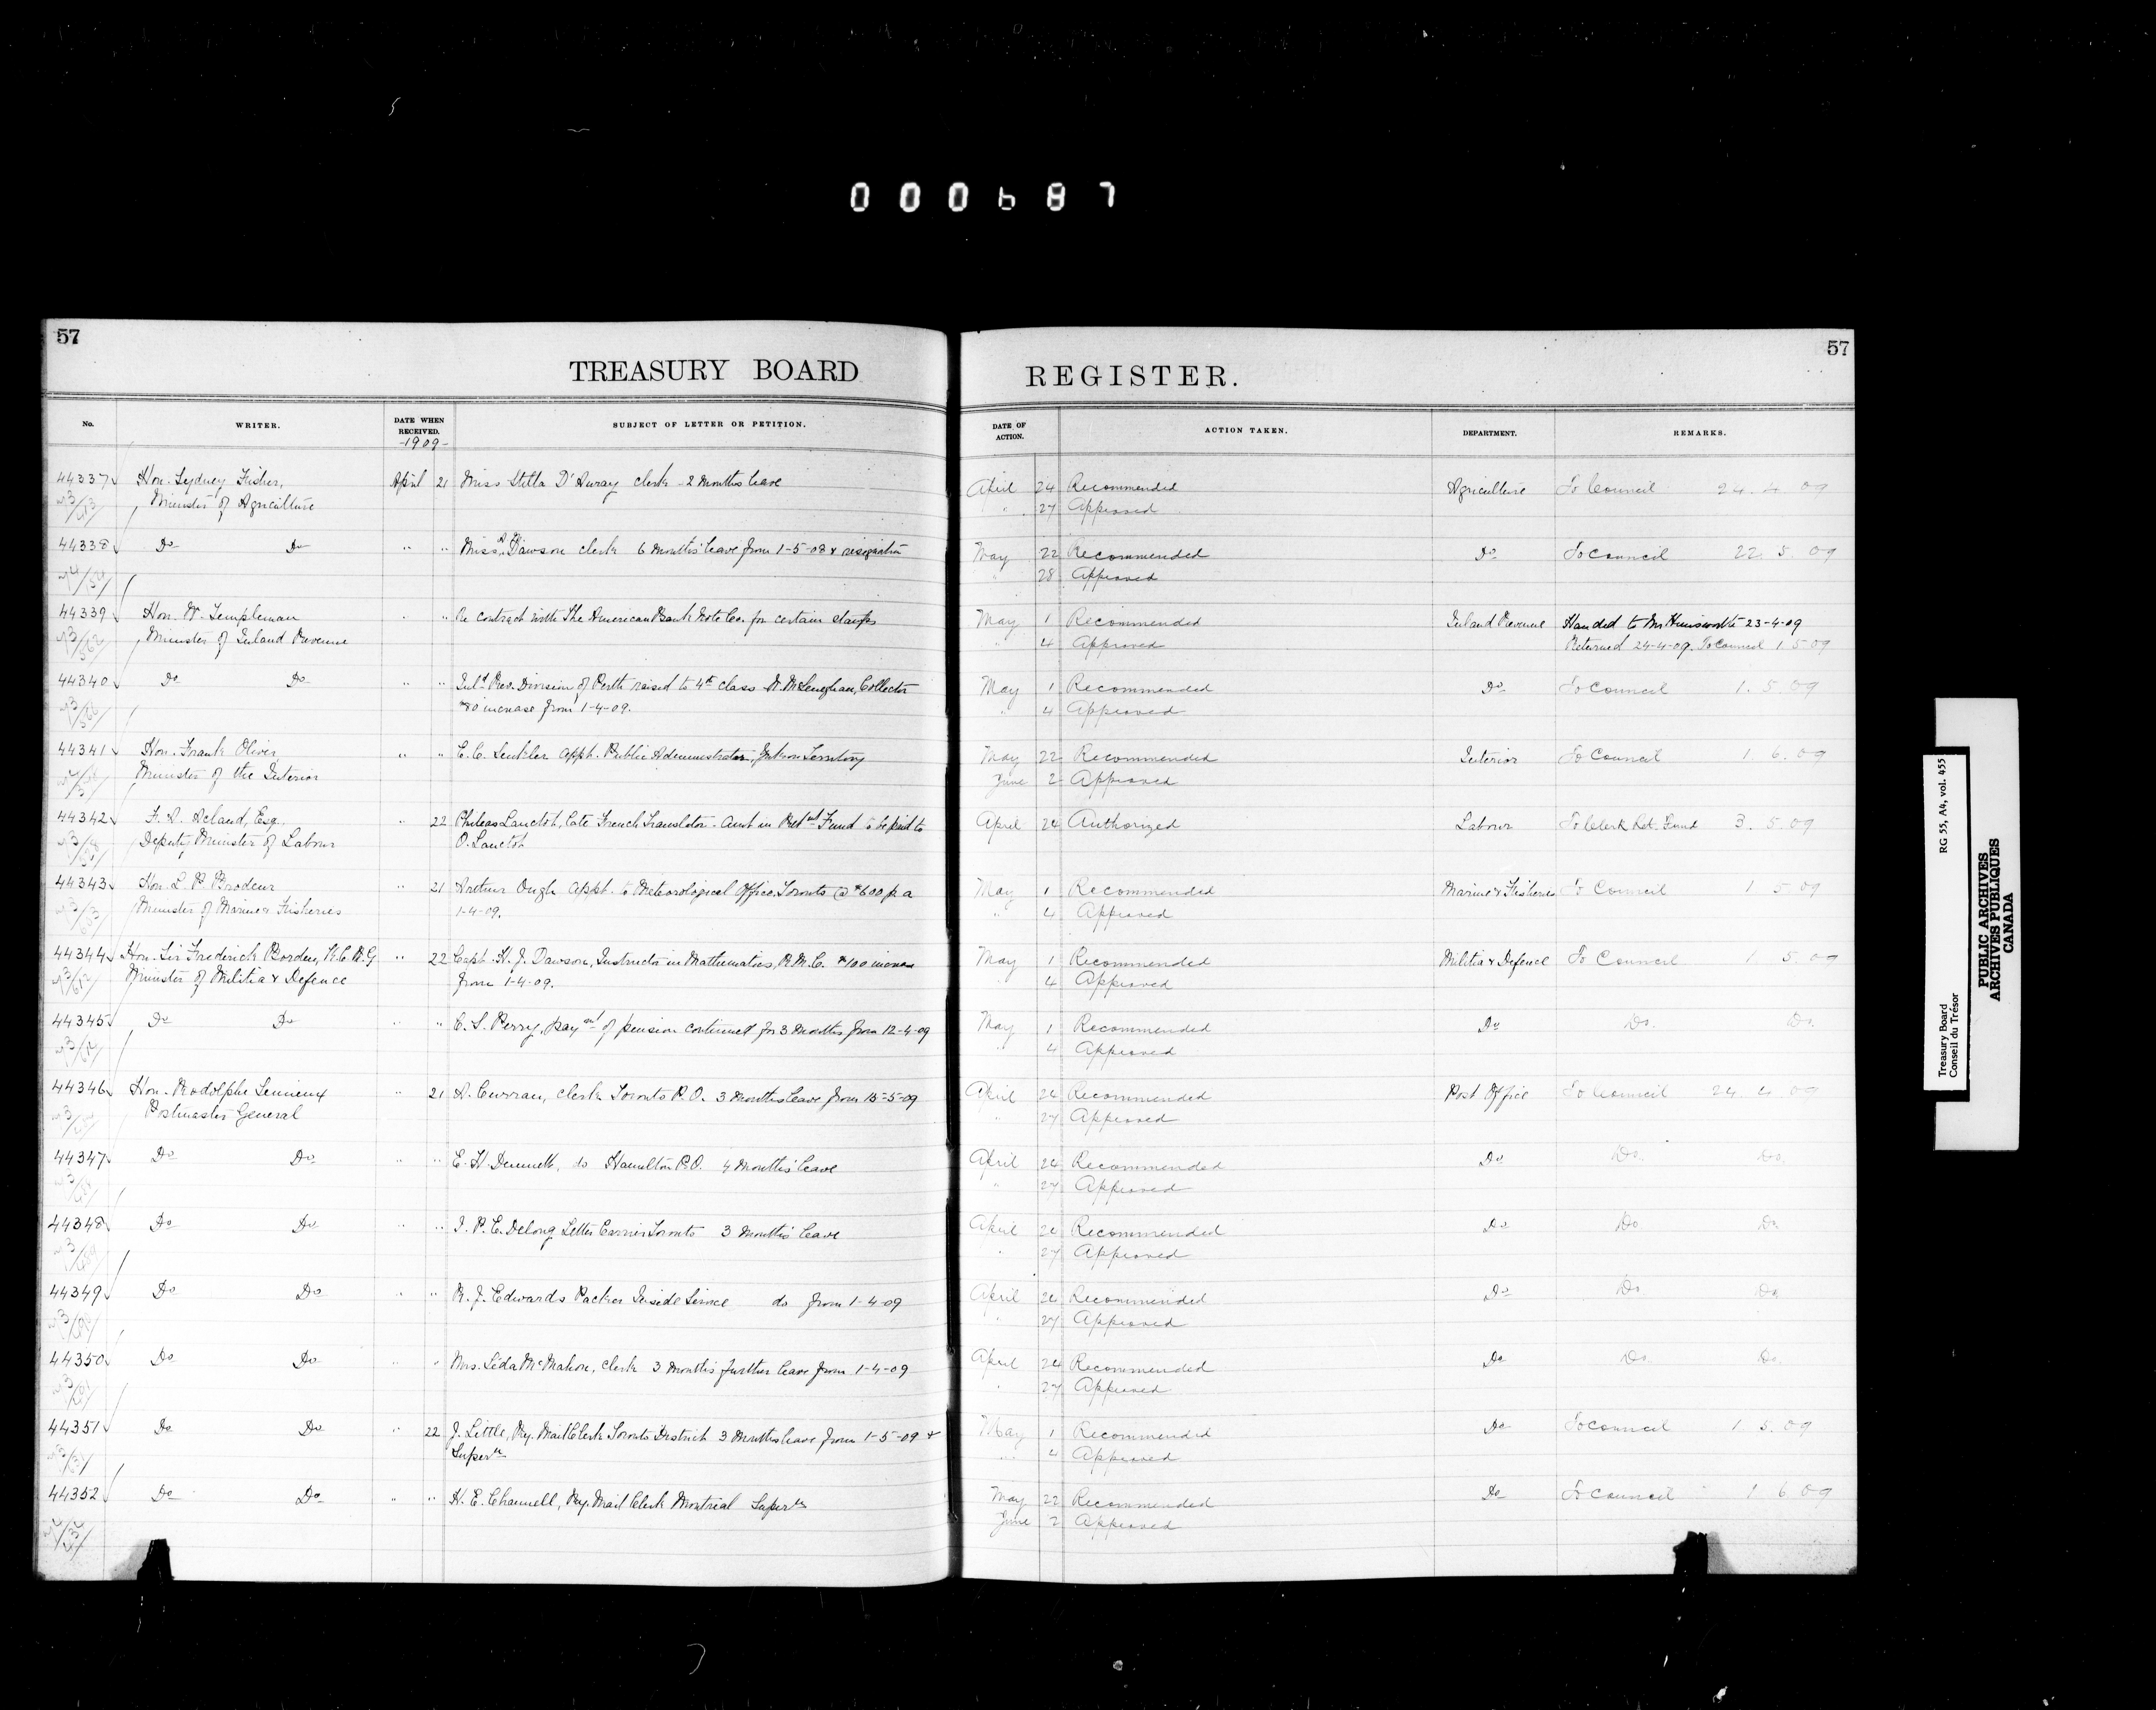 000687
57
57
TREASURY BOARD REGISTER.
No. WRITER. DATE WHEN RECEIVED. SUBJECT OF LETTER OR PETITION. DATE OF ACTION. ACTION TAKEN. DEPARTMENT. REMARKS.
-1909-
44337 Hon. Sydney Fisher, April 21 Miss Stella D'Auray clerk - 2 Months leave April 24 Recommended Agriculture To Council 24.4.09
Minister of Agriculture " 27 Approved
44338 Do Do " " Miss A. Dawson clerk 6 Months' leave from 1-5-08 & resignation May 22 Recommended Do To Council 22.5.09
" 28 Approved
44339 Hon. W. Templeman " " Re contract with The American Bank Note Co. for certain stamps May 1 Recommended Inland Revenue Handed to Mr Hunsworth 23-4-09
Minister of Inland Revenue " 4 Approved Returned 24-4-09. To Council 1.5.09
44340 Do Do " " Inld Rev. Division of Perth raised to 4th class - W. McLenaghan, Collector May 1 Recommended Do To Council 1.5.09
increase from 1-4-09. " 4 Approved
44341 Hon. Frank Oliver " " E.C. Senkler appt. Public Administrator, Yukon Territory May 22 Recommended Interior To Council 1.6.09
Minister of the Interior June 2 Approved
44342 F. A. Acland, Esq. " 22 Phileas Lanctot, late French Translator - Amt in Retmt Fund to be paid to April 24 Authorized Labour To Clerk Ret. Fund 3.5.09
Deputy Minister of Labour O. Lanctot
44343 Hon. L. P. Brodeur " 21 Arthur Ough appt. to Meteorological Office, Toronto @ $600 p.a May 1 Recommended Marine & Fisheries To Council 1 5.09
Minister of Marine & Fisheries 1-4-09. " 4 Approved
44344 Hon. Sir Frederick Borden, K.C.M.G " 22 Capt. H. J. Dawson, Instructor in Mathematics, R.M.C. $100 increase May 1 Recommended Militia & Defence To Council 1 5.09
Minister of Militia & Defence from 1-4-09. " 4 Approved
44345 Do Do " " C. S. Perry, paymt of pension continued for 3 Months from 12-4-09 May 1 Recommended Do Do. Do.
" 4 Approved
44346 Hon. Rodolphe Lemieux " 21 A. Curran, clerk Toronto P.O. 3 Months leave from 15-5-09 April 24 Recommended Post Office To Council 24.4.09
Postmaster General " 27 Approved
44347 Do Do " " E. H. Dennett, do Hamilton P.O. 4 Months' leave April 24 Recommended Do Do. Do.
" 27 Approved
44348 Do Do " " I. P. E. Delong Letter Carrier Toronto 3 Months' leave April 24 Recommended Do Do Do
" 27 Approved
44349 Do Do " " R. J. Edwards Packer Inside Service do from 1-4-09 April 24 Recommended Do Do Do
" 27 Approved
44350 Do Do " " Mrs. Léda McMahon, clerk 3 Months further leave from 1-4-09 April 24 Recommended Do Do. Do.
" 27 Approved
44351 Do Do " 22 J. Little, Ry. Mail Clerk Toronto District 3 Months leave from 1-5-09 & May 1 Recommended Do To Council 1.5.09
Superm " 4 Approved
44352 Do Do " " H. E. Channell, Ry. Mail Clerk Montreal Superm May 22 Recommended Do To Council 1 6 09
June 2 Approved
Treasury Board RG 55, A4, vol. 455
Conseil du Trésor
PUBLIC ARCHIVES
ARCHIVES PUBLIQUES
CANADA